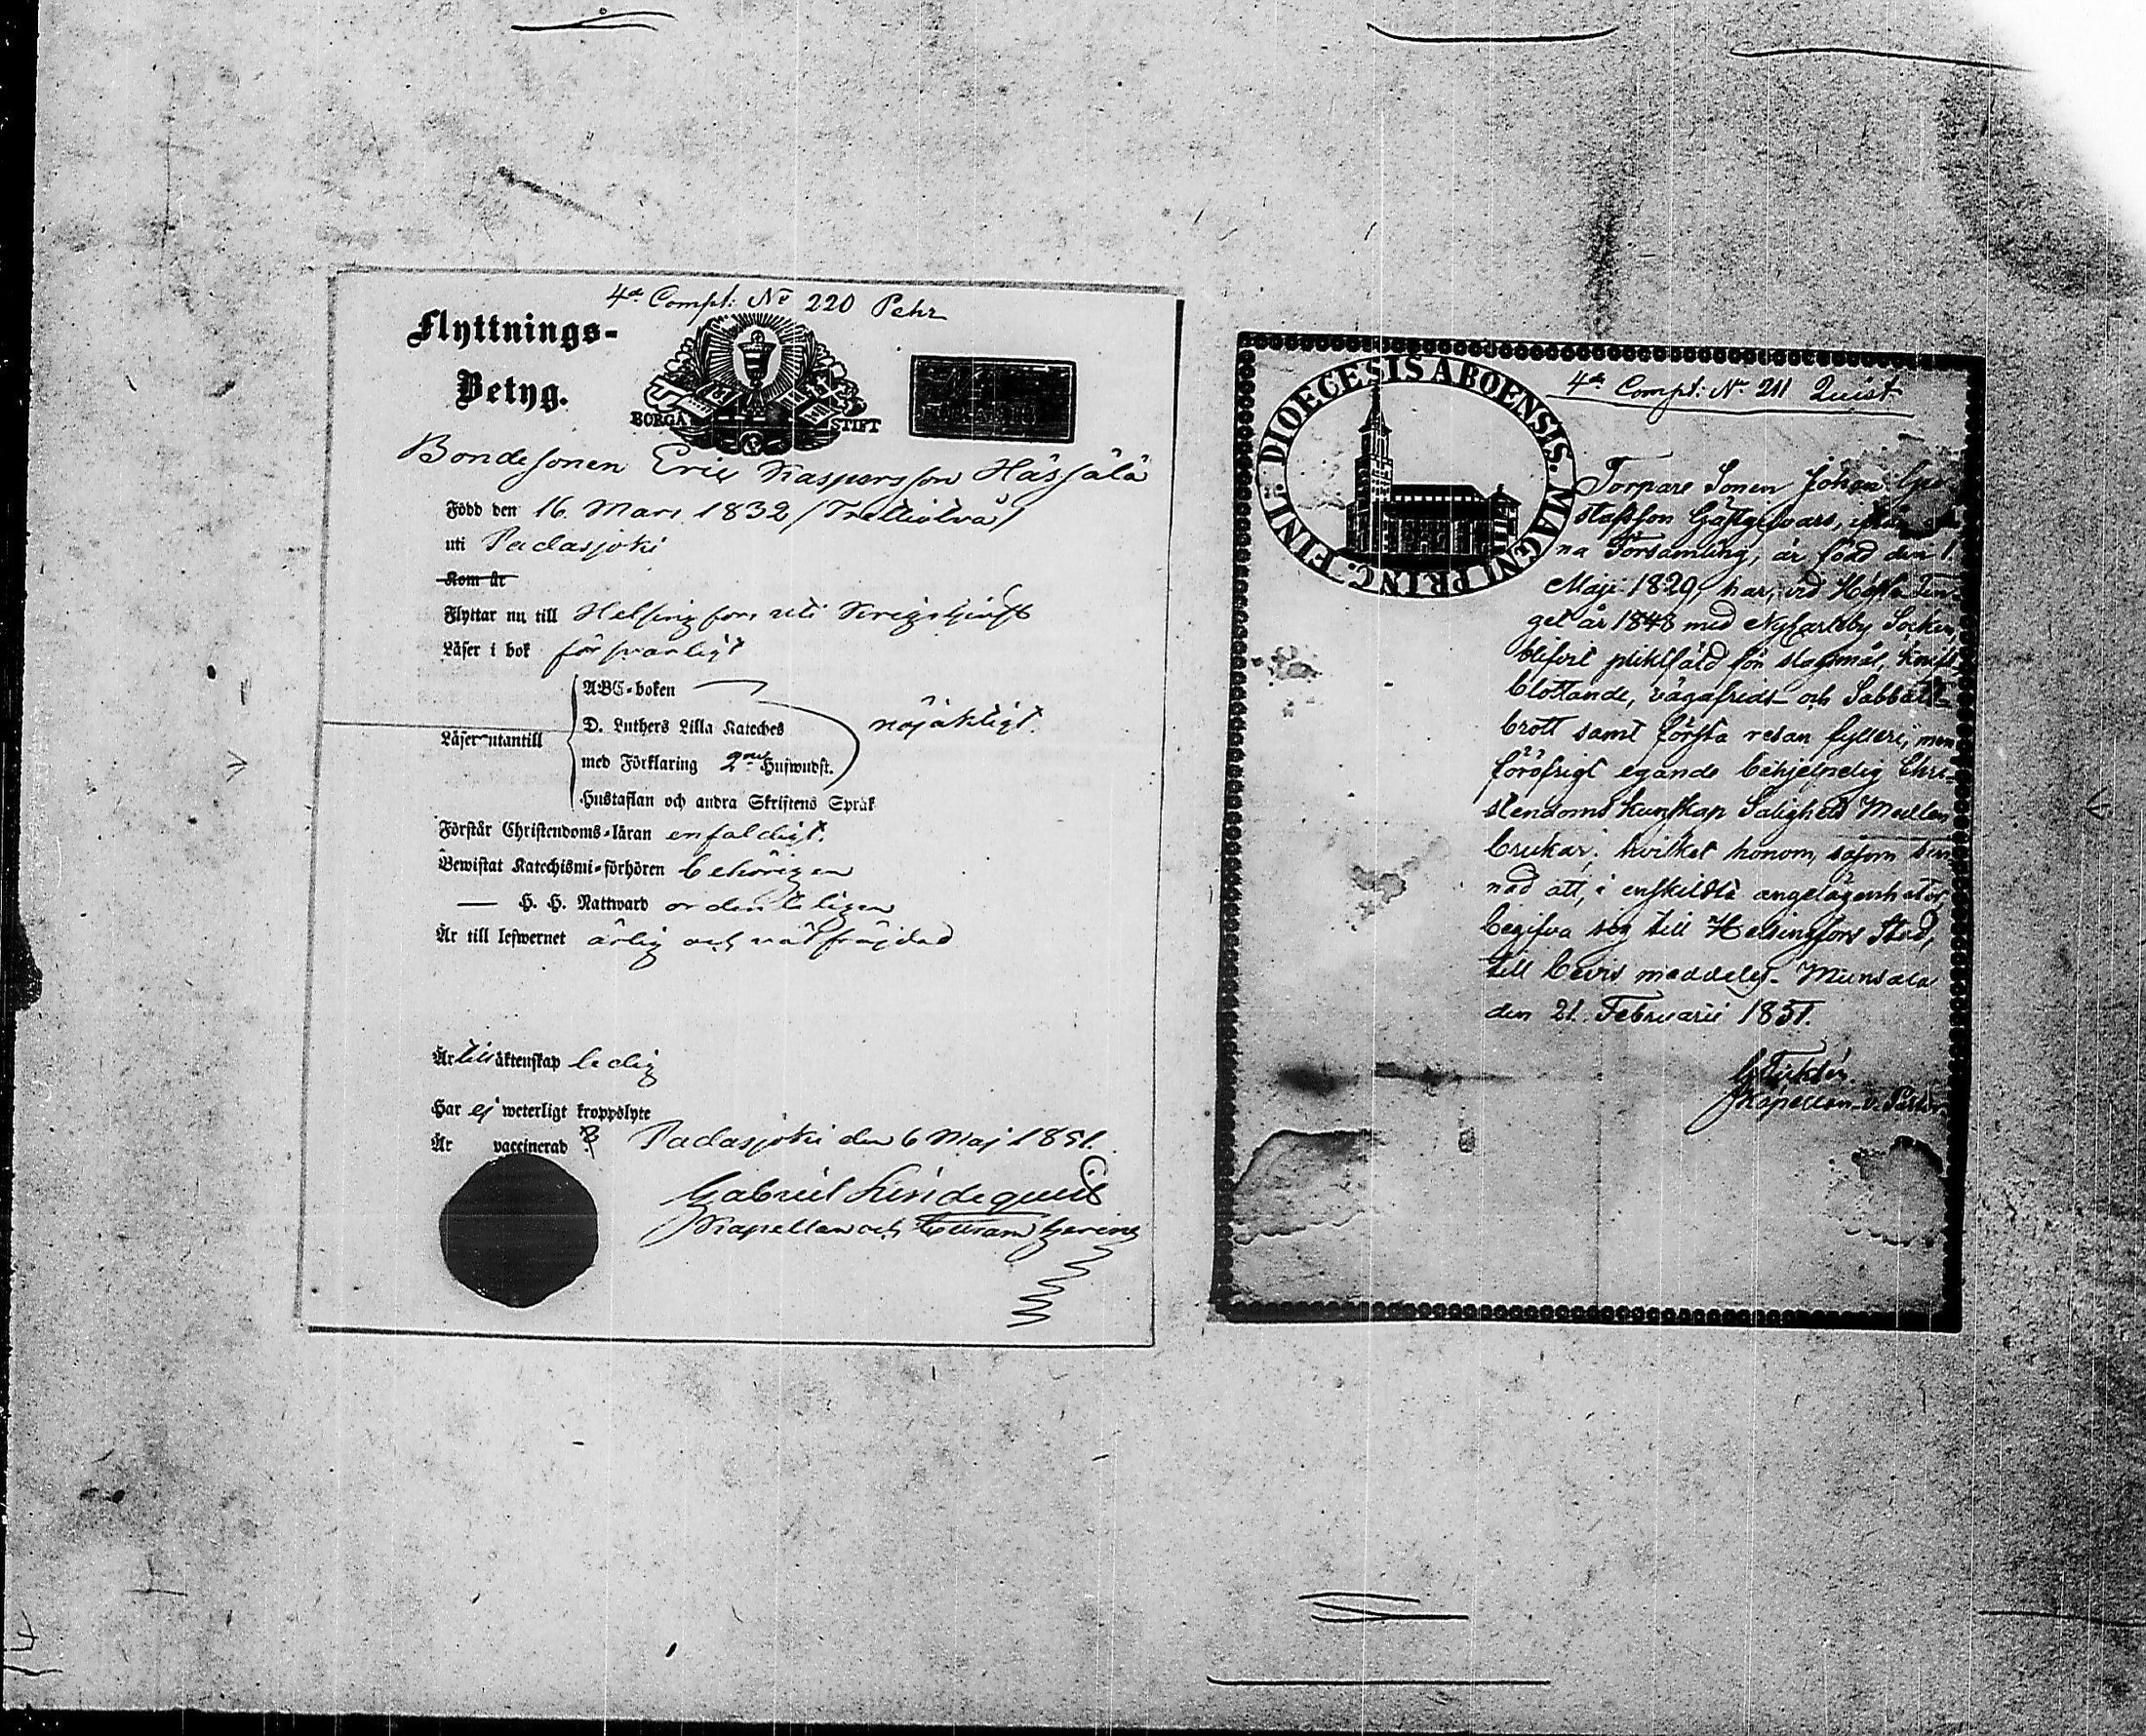 4de Compt: No 220 Pehr
Flyttnings-
Betyg.
BORGÅ STIFT
Bondesonen Eric Kaspersson Hässälä
Född den 16 Mars 1832 (Trettiotvå)
uti Padasjoki
Kom år
Flyttar nu till Helsingfors uti Krigstjenst
Läser i bok försvarligt
ABC-boken
D. Luthers Lilla Kateches nöjaktligt.
Läser utantill
med Förklaring 2ne Hufwudst.
Hustaflan och andra Skriftens Språk
Förstår Christendoms-läran enfaldigt.
Bewistat Katechismi-förhören behörigen
— H. H. Nattward ordentligen
Är till lefwernet ärlig och välfrägdad
Är till äktenskap ledig
Har ej weterligt kroppslyte
Är vaccinerad Padasjoki den 6 Maj 1851.
Gabriel Lindequist
Kapellan och
DIOECESIS ABOENSIS. MAGNI PRINC. FINL:
4de Compt: No 211 Quist
Torpare Sonen Johan Gu-
stafsson Gästgifvars,
na Församling, är född den 1
Maji 1829, har, vid Hösta Tin-
get år 1848 med Nykarleby Socken,
blifvit pliktfäld för slagsmål, knif-
blottande, vägafrids- och Sabbats-
brott samt första resan fylleri, men
föröfrigt egande behjelpelig Chri-
stendoms kunskap Salighets Medlen
brukar; hvilket honom, såsom sin-
nad att, i enskildta angelägenheter,
begifva sig till Helsingfors Stad,
till bevis meddelas. Munsala
den 21. Februarii 1851.
Kapellan. v. Pastor